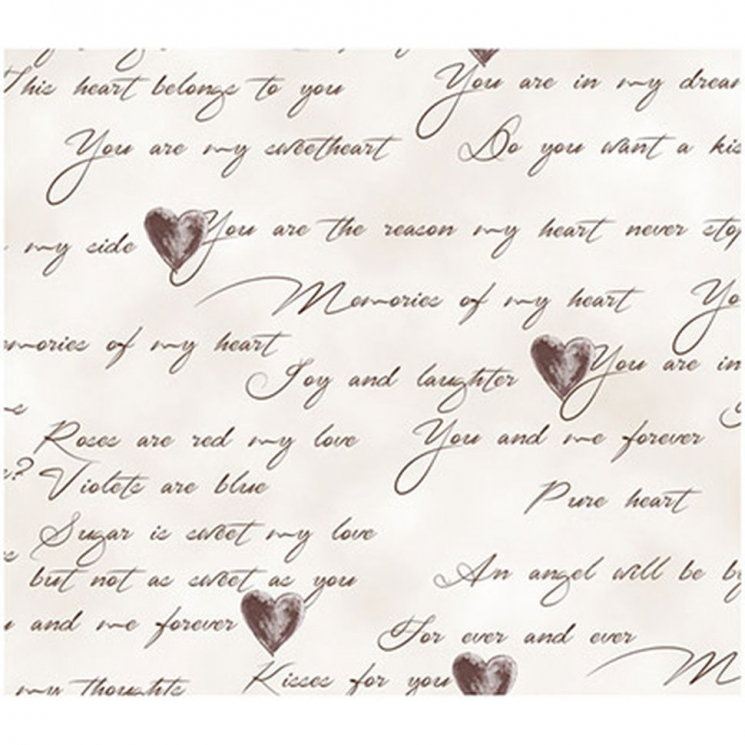 This heart belongs to you
You are in my drea
You are my sweetheart
Do you want a kis
my side
You are the reason my heart never stop
Memories of my heart
Yo
mories of my heart
Joy and laughter
You are in
Roses are red my love
You and me forever
s? Violets are blue
Pure heart
Sugar is sweet my love
but not as sweet as you
An angel will be by
and me forever
For ever and ever
my thoughts
Kisses for you
M